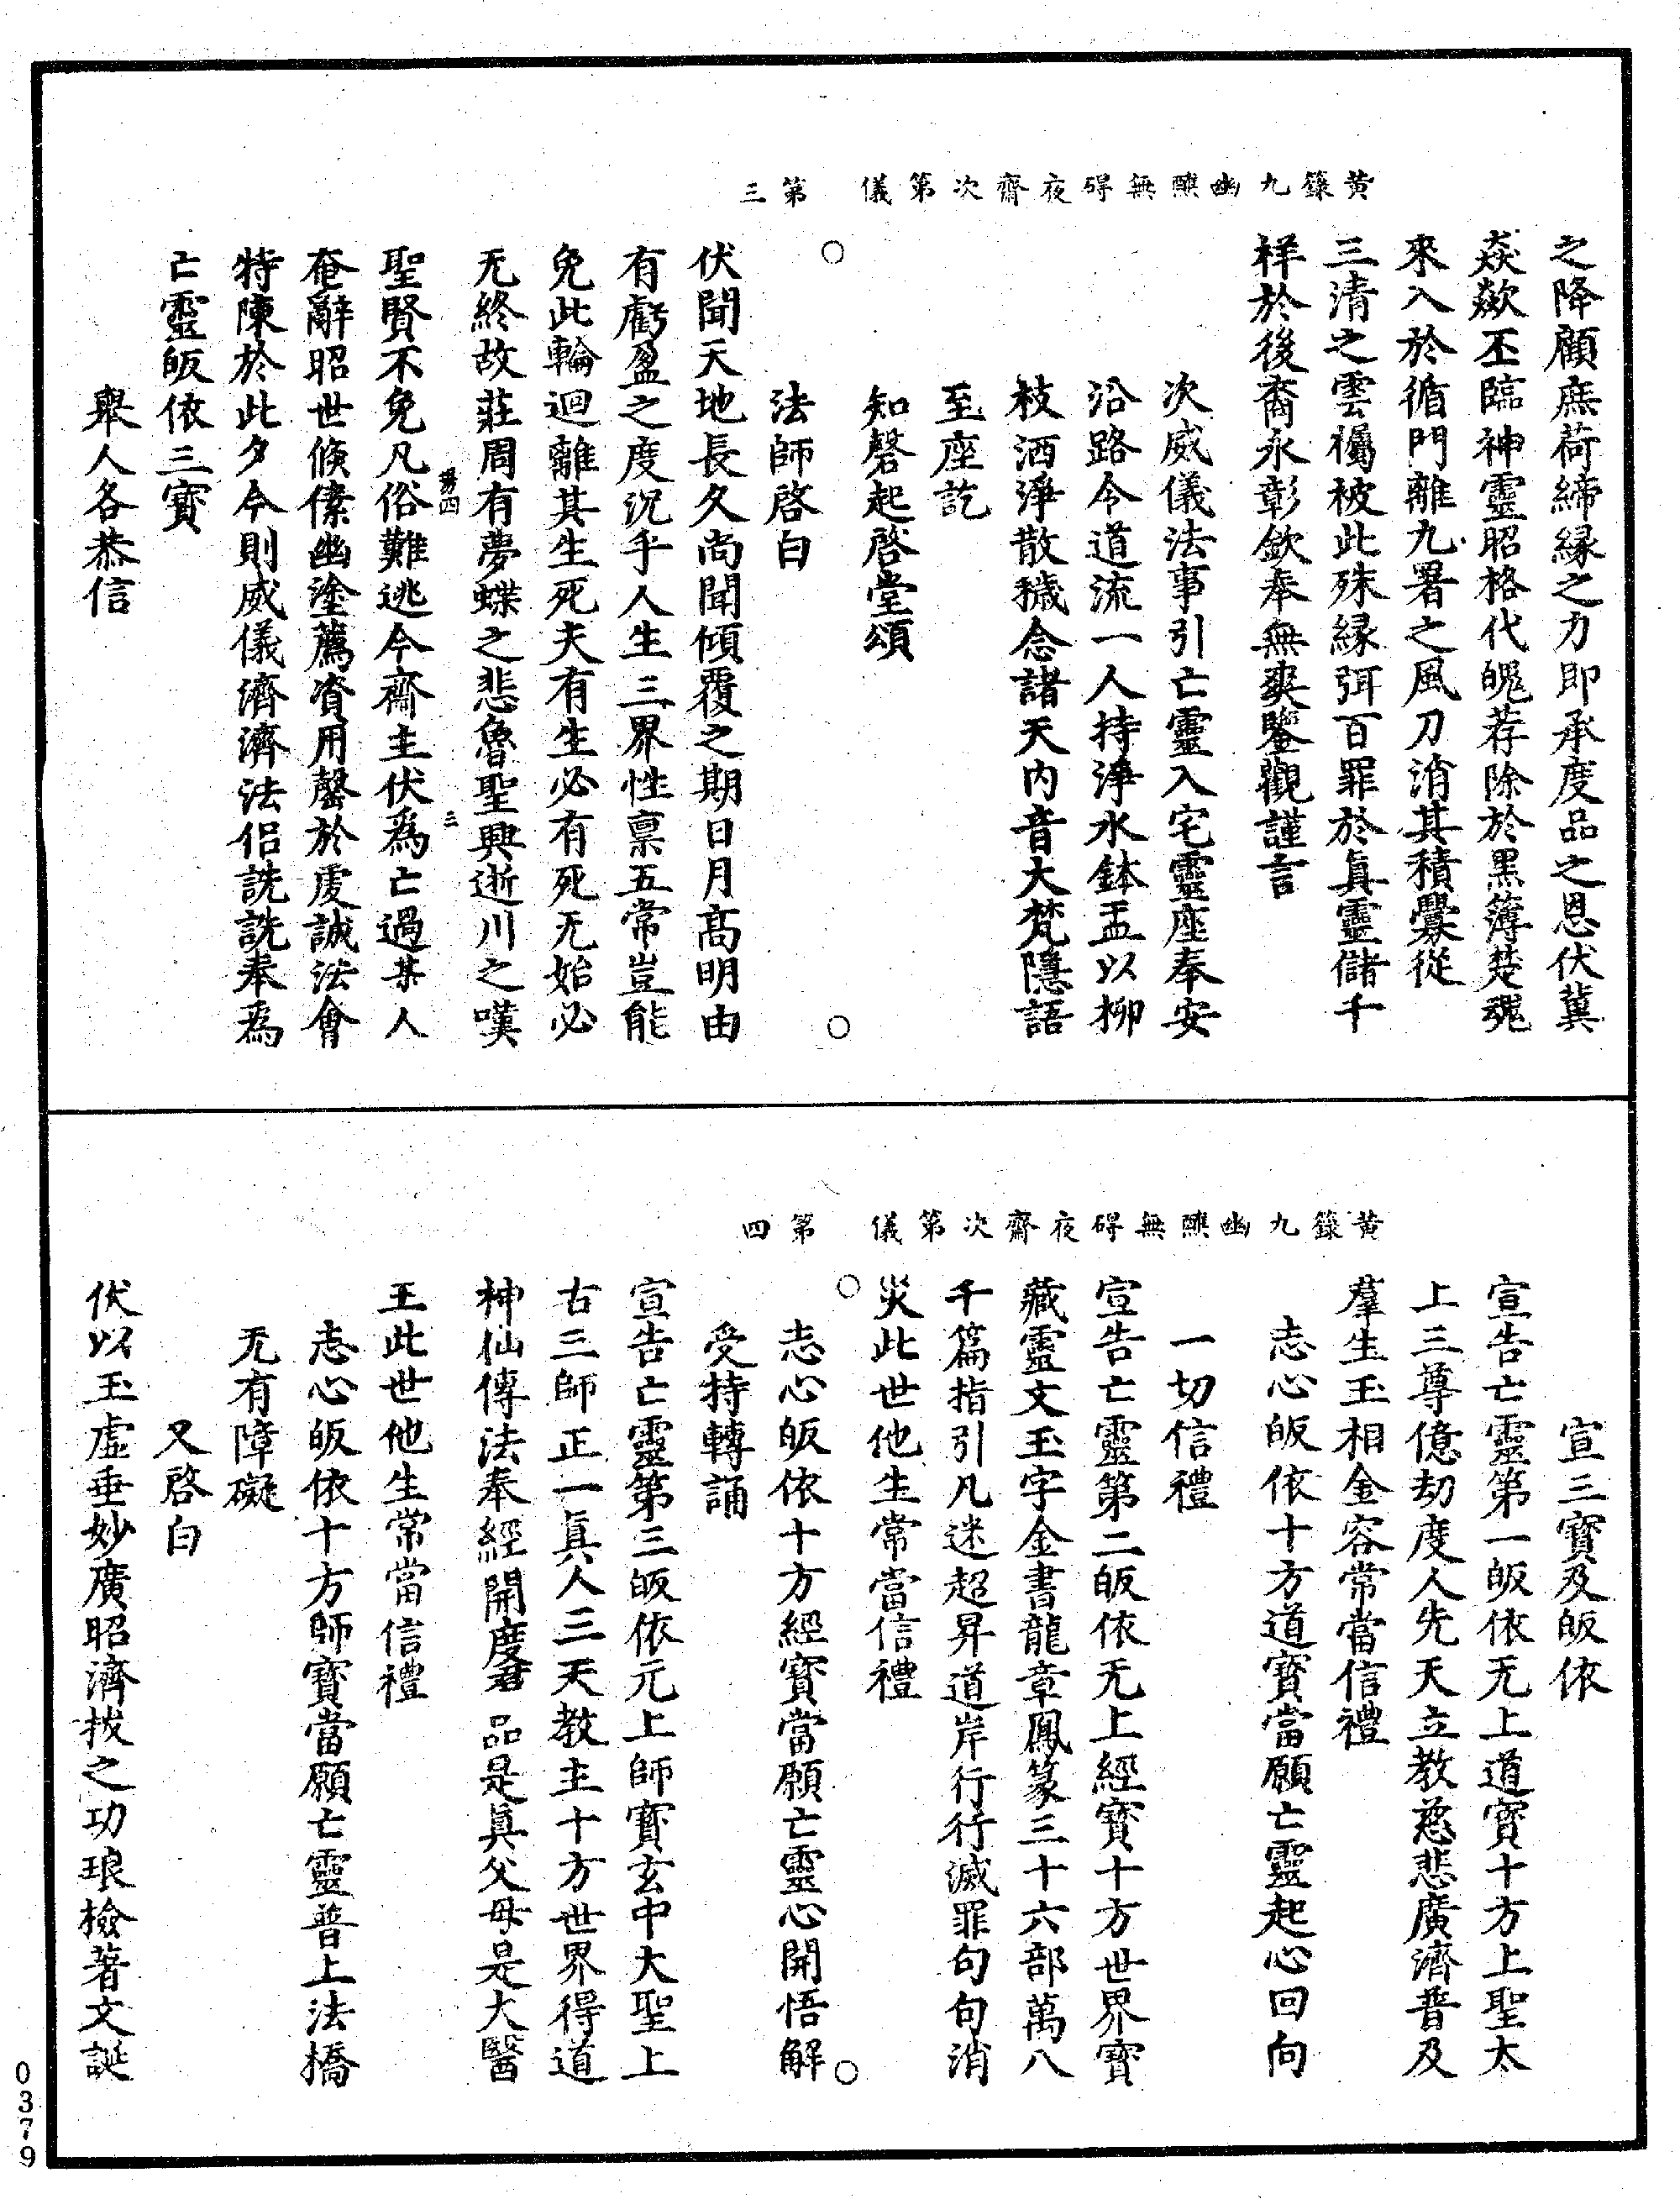 黃籙九幽醮無碍夜齋次第儀　第三
之降顧庶荷締縁之力即承度品之恩伏冀
焱歘丕臨神靈昭格代魄荐除於黑簿楚魂
來入於循門離九署之風刀消其積釁從
三清之雲襯柀此殊縁弭百罪於眞靈儲千
祥於後裔永彰欽奉無爽鑒觀謹言
次威儀法事引亡靈入宅靈座奉安
沿路令道流一人持淨水鉢盂以柳
枝洒淨散穢念諸天内音大梵隱語
至座訖
知磬起啓堂頌
法師啓白
伏聞天地長久尚聞傾覆之期日月髙明由
有虧盈之度況乎人生三界性禀五常豈能
免此輪迴離其生死夫有生必有死无始必
无終故莊周有夢蝶之悲魯聖興逝川之嘆
三
聖賢不免凡俗難逃今齋主伏爲亡過某人
奄辭昭世倏傃幽塗薦資用罄於虔誠法會
特陳於此夕今則威儀濟濟法侣詵詵奉爲
亡靈皈依三寳
舉人各恭信
黃籙九幽醮無碍夜齋次第儀　第四
宣三寳及皈依
宣告亡靈第一皈依无上道寳十方上聖太
上三尊億劫度人先天立教慈悲廣濟普及
羣生玉相金容常當信禮
志心皈依十方道寳當願亡靈起心回向
一切信禮
宣告亡靈第二皈依无上經寳十方世界寳
藏靈文玉字金書龍章鳳篆三十六部萬八
千篇指引凡迷超昇道岸行行滅罪句句消
災此世他生常當信禮
志心皈依十方經寳當願亡靈心開悟解
受持轉誦
宣告亡靈第三皈依元上師寳玄中大聖上
古三師正一眞人三天教主十方世界得道
神仙傳法奉經開度君品是眞父母是大醫
王此世他生常當信禮
志心皈依十方師寳當願亡靈普上法橋
无有障礙
又啓白
伏以玉虛垂妙廣昭濟拔之功琅檢著文誕
0379